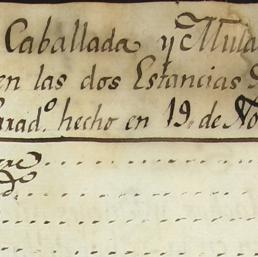 Caballada y Mula
en las dos Estancias
arad.º hecho en 19. de No